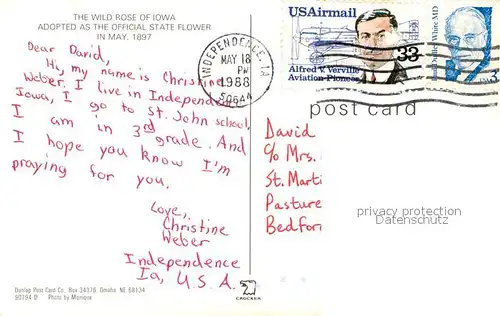 THE WILD ROSE OF IOWA
ADOPTED AS THE OFFICIAL STATE FLOWER
IN MAY, 1897
Dear David,
Hi, my name is Christine
Weber. I live in Independence
Iowa, I go to St. John school,
I am in 3rd grade. And
I hope you know I'm
praying for you.
Love,
Christine
Weber
Independence
Ia, U.S.A.
Dunlap Post Card Co. Box 34376 Omaha NE 68134
90194 D Photo by Monique
CROCKER
INDEPENDENCE, IA
MAY 18
PM
1988
50644
USAirmail
33
Alfred V. Verville
Aviation Pioneer
White MD
3
post card
David
c/o Mrs.
St. Marti
Pasture
Bedfor
privacy protection
Datenschutz